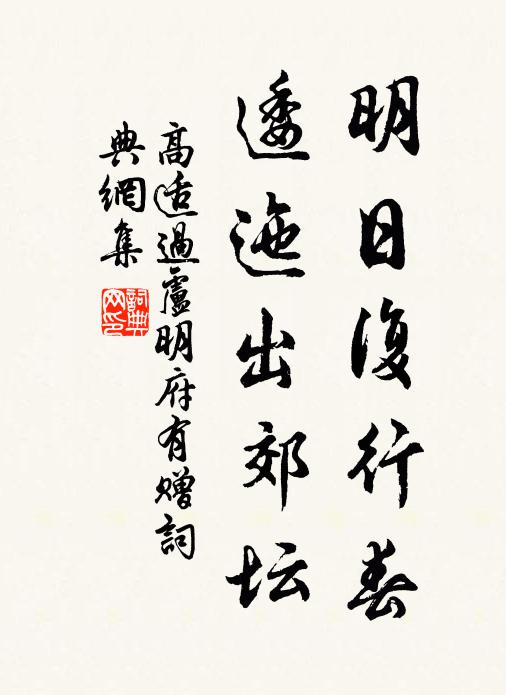 明日復行春
逶迤出郊坛
高适過盧明府有贈詞
典網集
詞典
网印